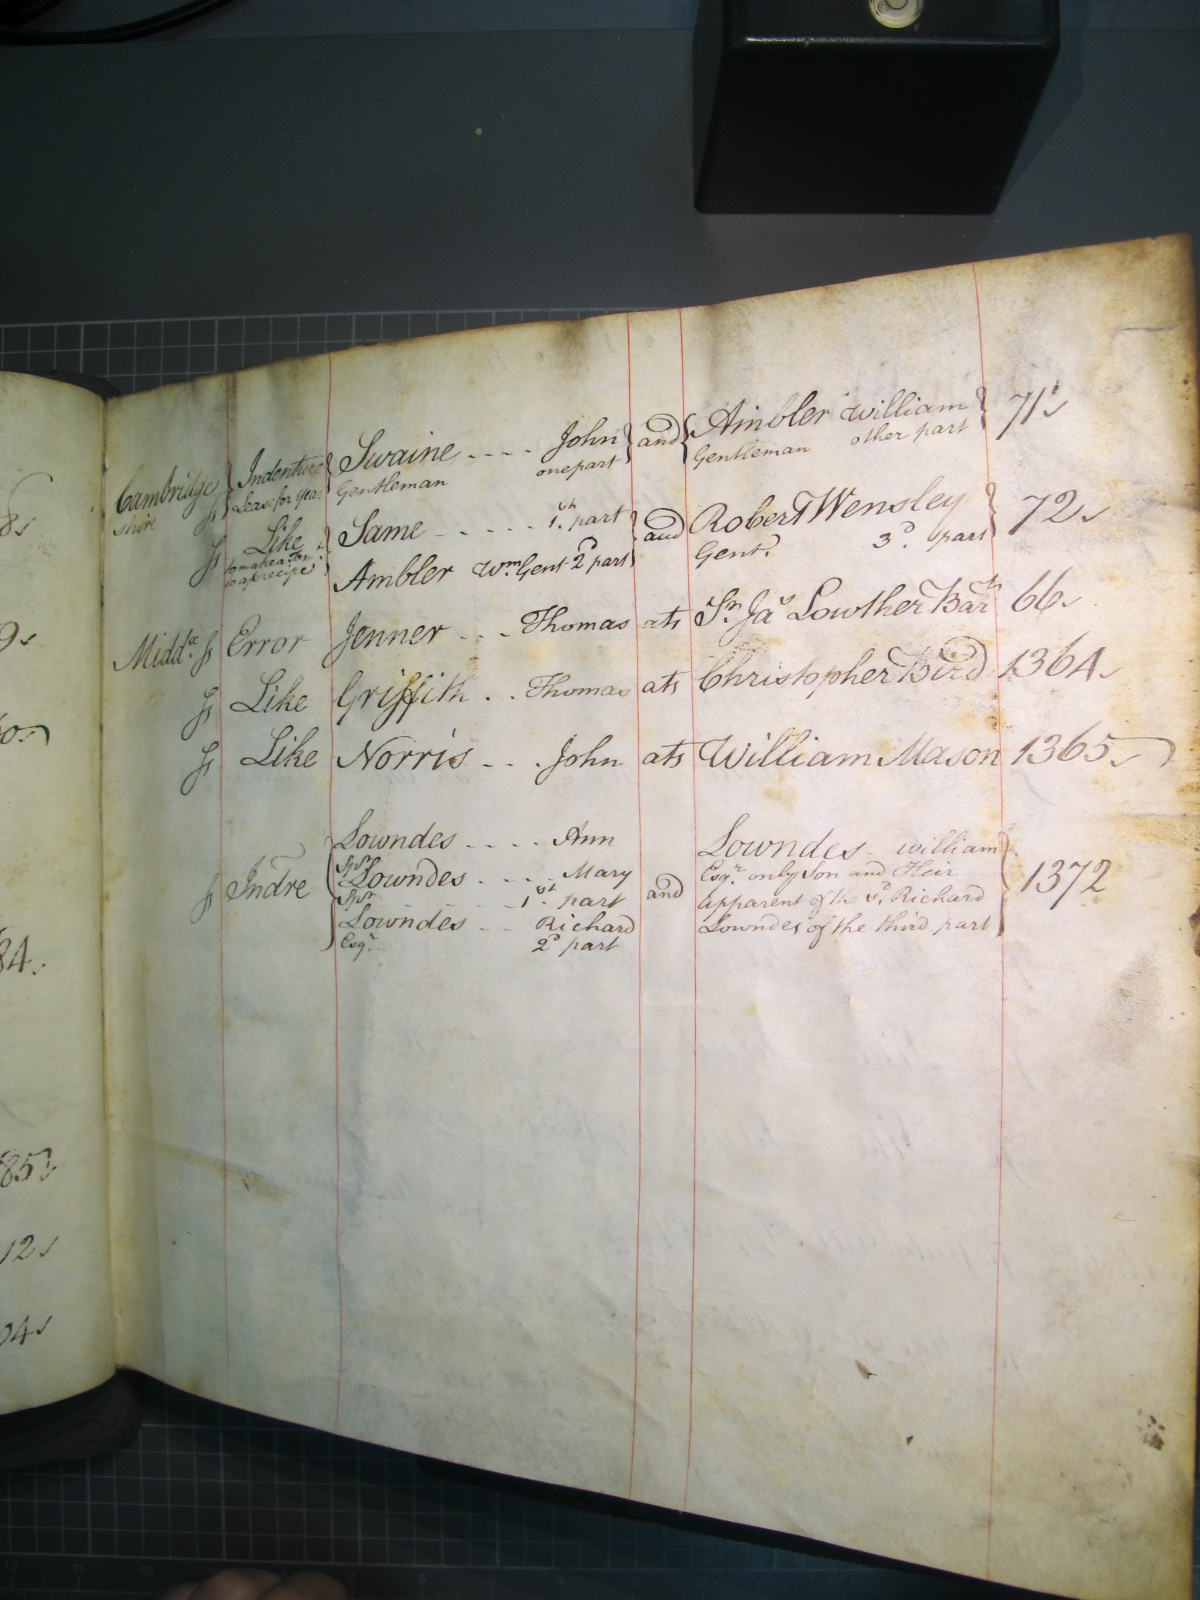 Cambridge shire ss Indenture Lease for Year Swaine .... John and Ambler William 71
Gentleman one part Gentleman other part
ss Like Same .... 1st part and Robert Wensley 72
to make a Ten.t to a precipe Ambler Wm. Gent 2d part Gent. 3d. part
Midd.x ss Error Jenner ... Thomas ats Sr. Jas Lowther Bart 66
ss Like Griffith .. Thomas ats Christopher Bird 1364
ss Like Norris ... John ats William Mason 1365
Lowndes .... Ann Lowndes William
Spr Esqr. only Son and Heir
ss Indre Lowndes .... Mary and 1372
Spr 1st part apparent of the sd. Richard
Lowndes .. Richard Lowndes of the third part
Esqr. 2d part
8
9
84
85
12
04